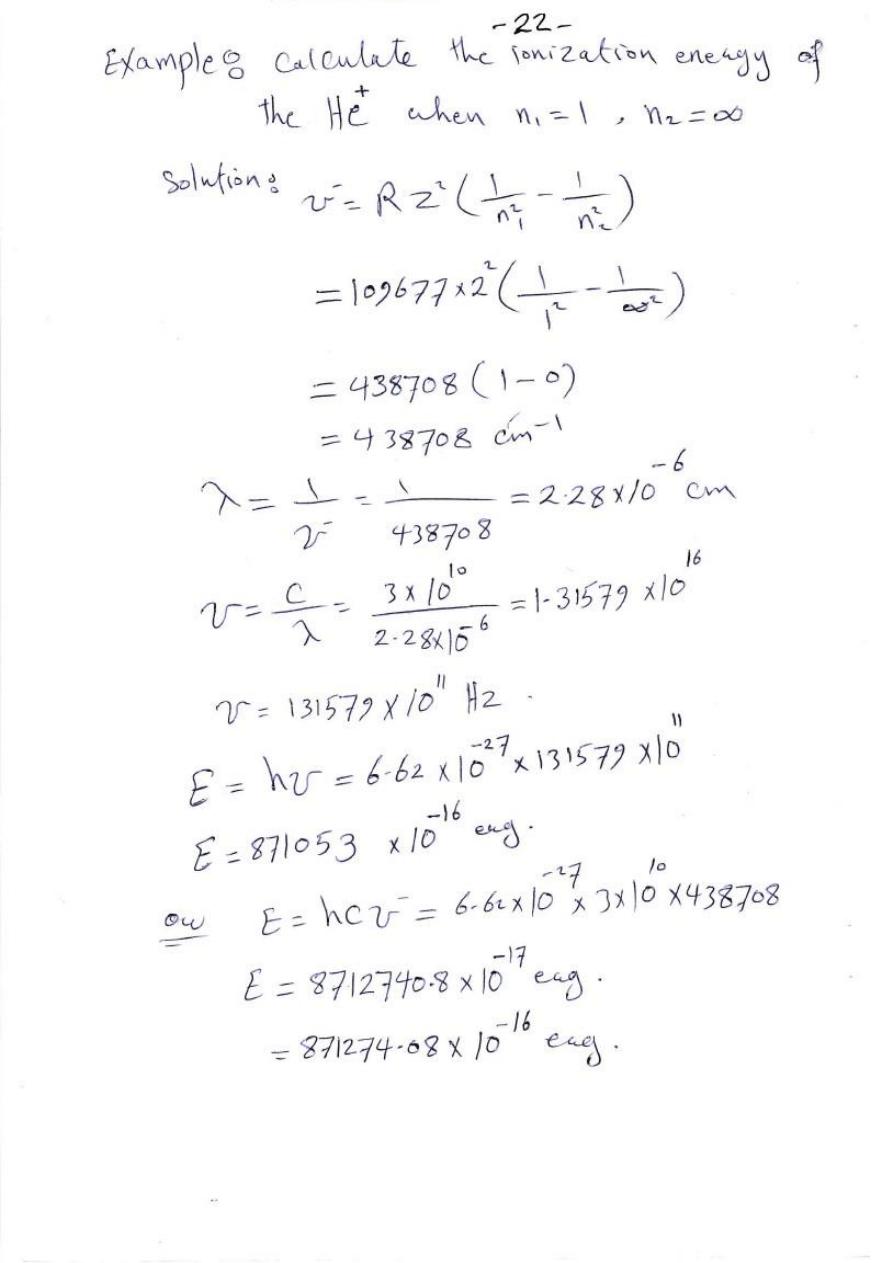 -22-
Example: Calculate the ionization energy of
the He⁺ when n₁ = 1 , n₂ = ∞
Solution:
ν̄ = R Z² ( 1/n₁² - 1/n₂² )
= 109677 × 2² ( 1/1² - 1/∞² )
= 438708 ( 1 - 0 )
= 438708 cm⁻¹
λ = 1/ν̄ = 1/438708 = 2.28 × 10⁻⁶ cm
ν = C/λ = 3 × 10¹⁰ / 2.28 × 10⁻⁶ = 1.31579 × 10¹⁶
ν = 131579 × 10¹¹ Hz .
E = hν = 6.62 × 10⁻²⁷ × 131579 × 10¹¹
E = 871053 × 10⁻¹⁶ erg .
or E = hcν̄ = 6.62 × 10⁻²⁷ × 3 × 10¹⁰ × 438708
E = 8712740.8 × 10⁻¹⁷ erg .
= 871274.08 × 10⁻¹⁶ erg .